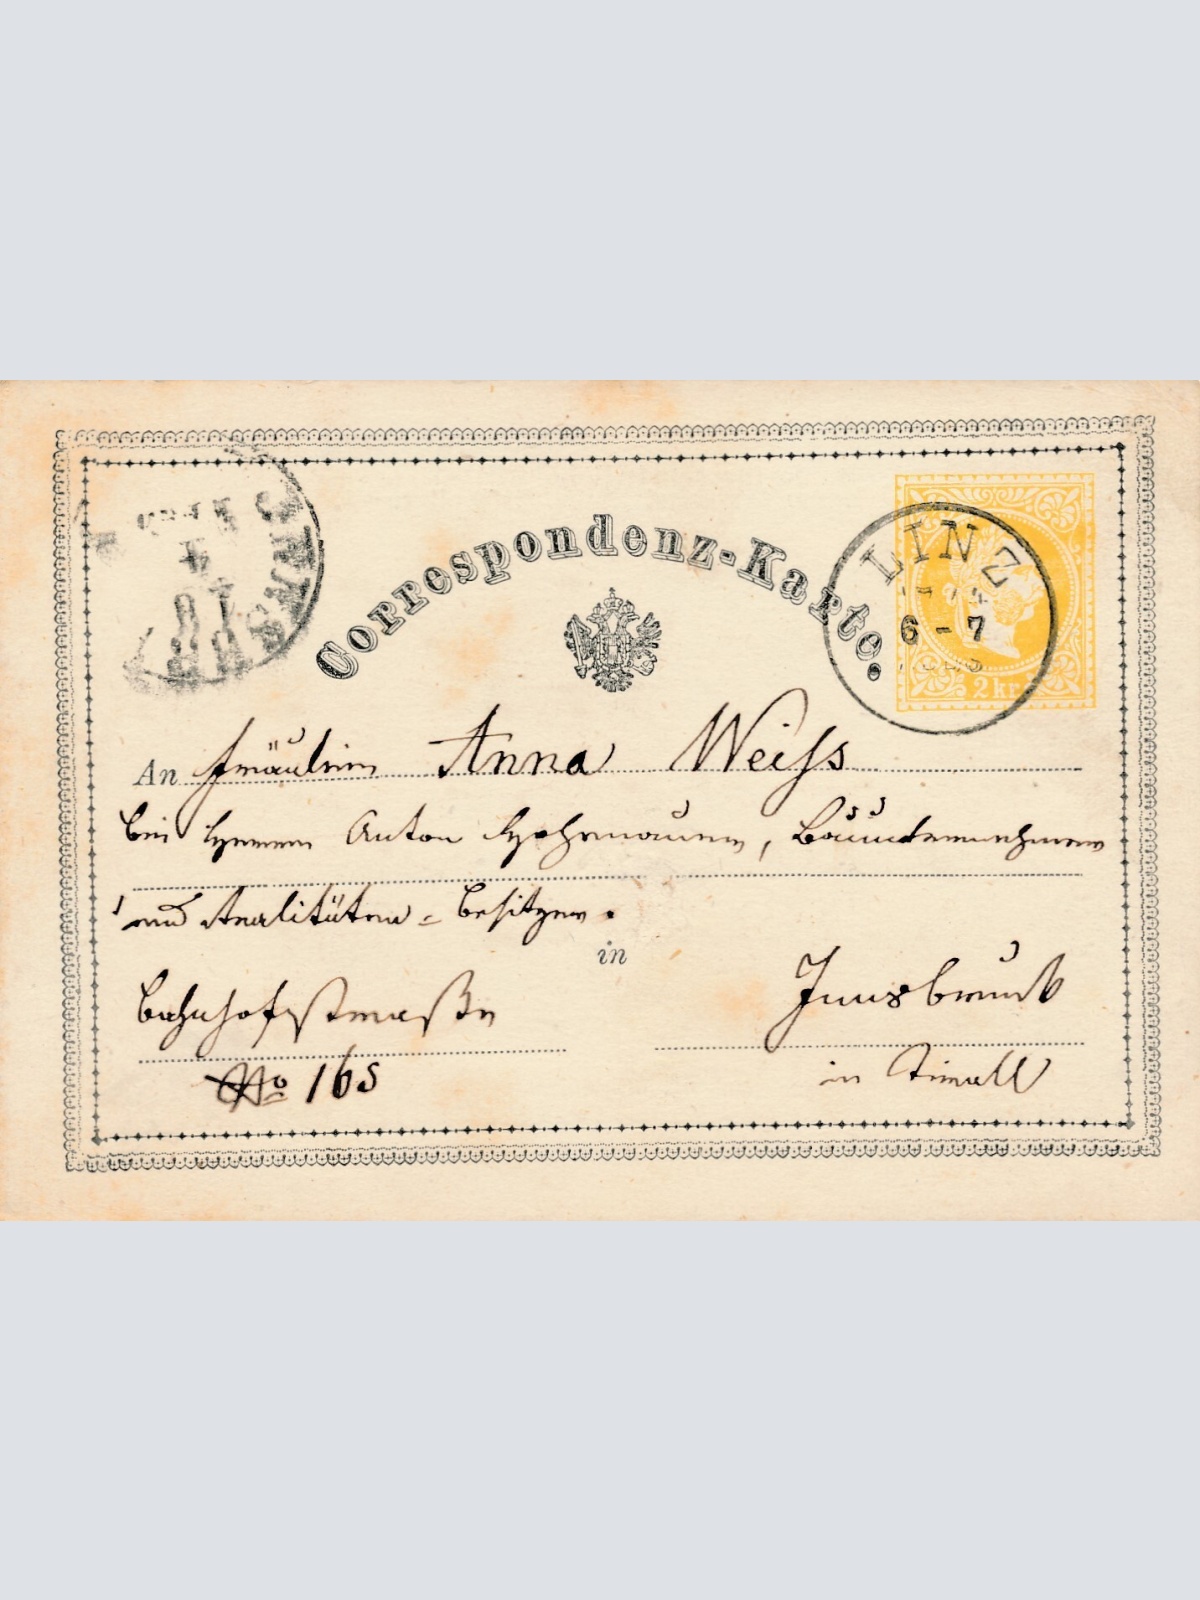 Correspondenz-Karte.
LINZ
6 - 7
2 kr.
An Fräulein Anna Weiss
bei Herrn Anton , Bauunternehmer
und Realitäten = Besitzer.
in
Bahnhofstraße Innsbruck
No 165 in Tirol